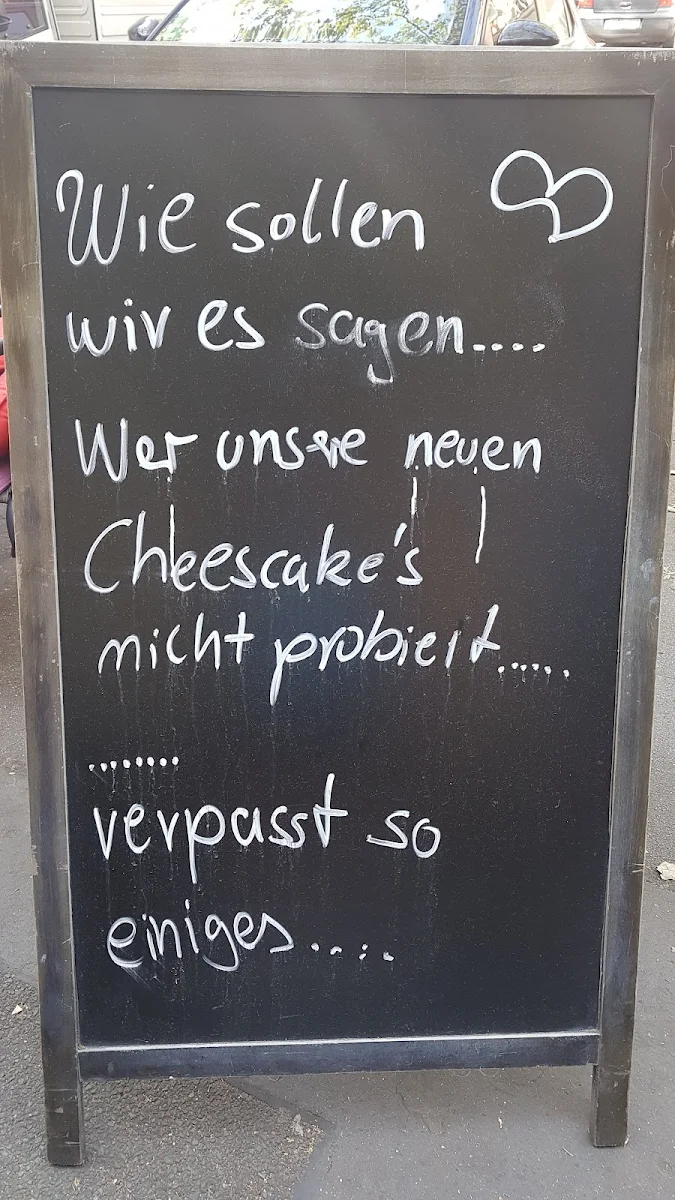 Wie sollen
wir es sagen....
Wer unsere neuen
Cheescake's
nicht probiert.....
.......
verpasst so
einiges....